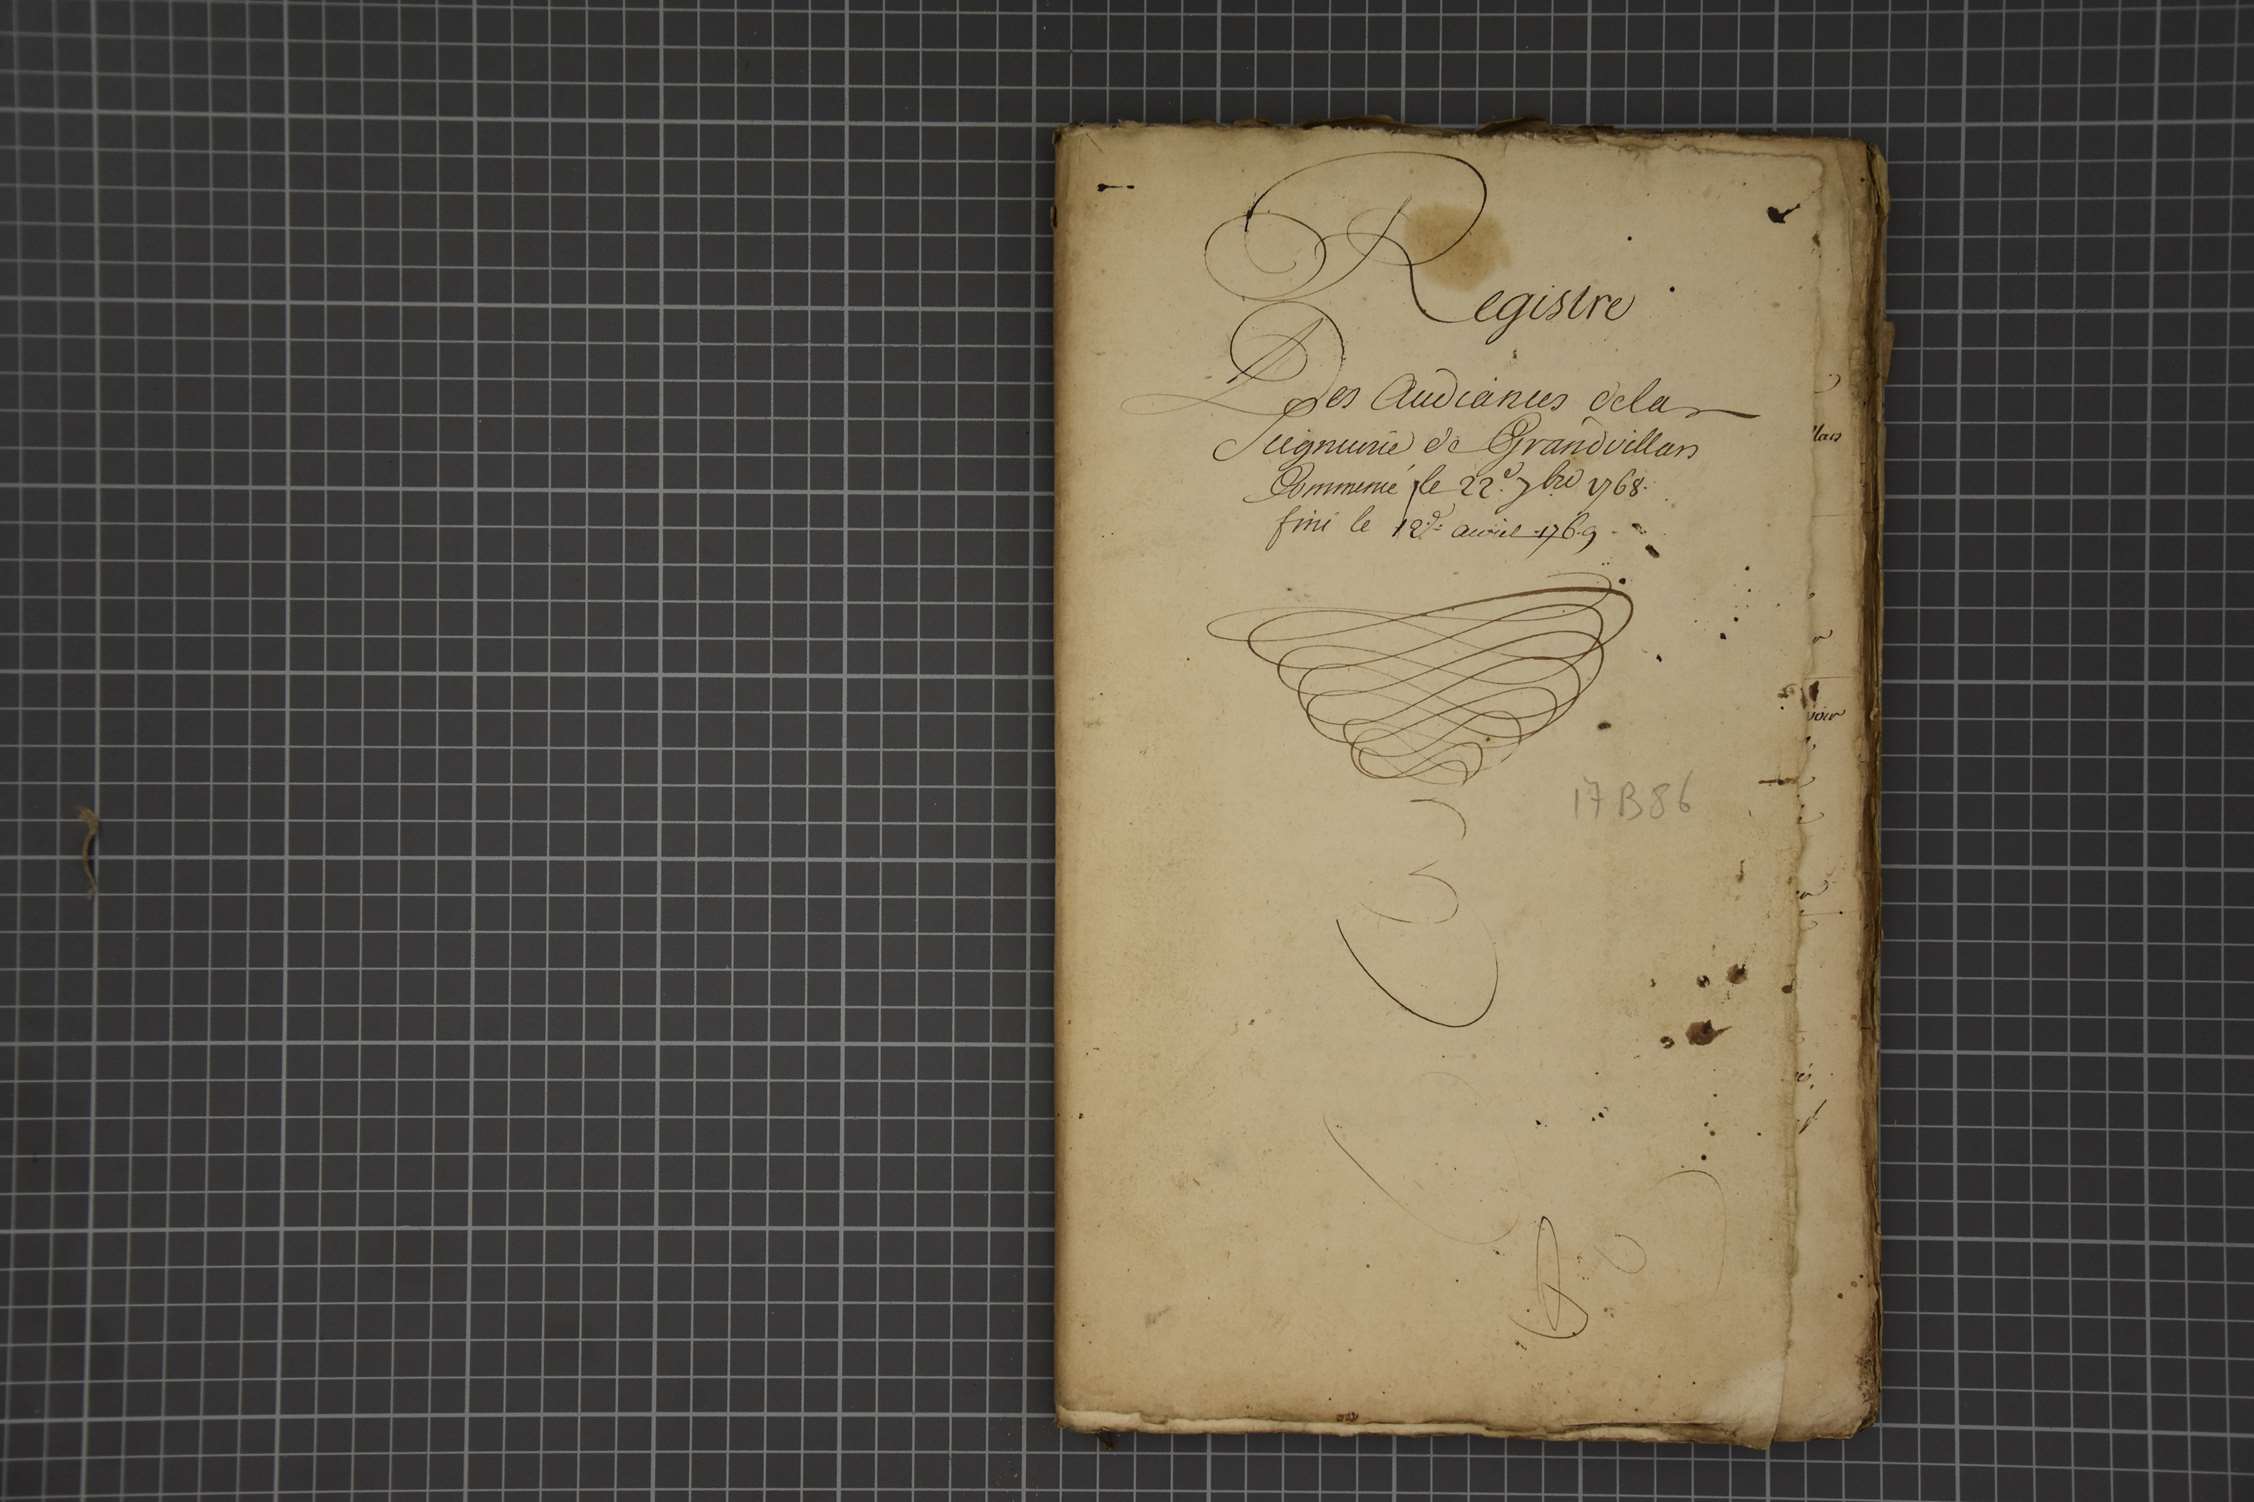 Registre
Des Audiances dela
Seigneurie de Grandvillars
Commencé le 22e. 7bre 1768.
fini le 12e. avril 1769
17B86
llars
voir